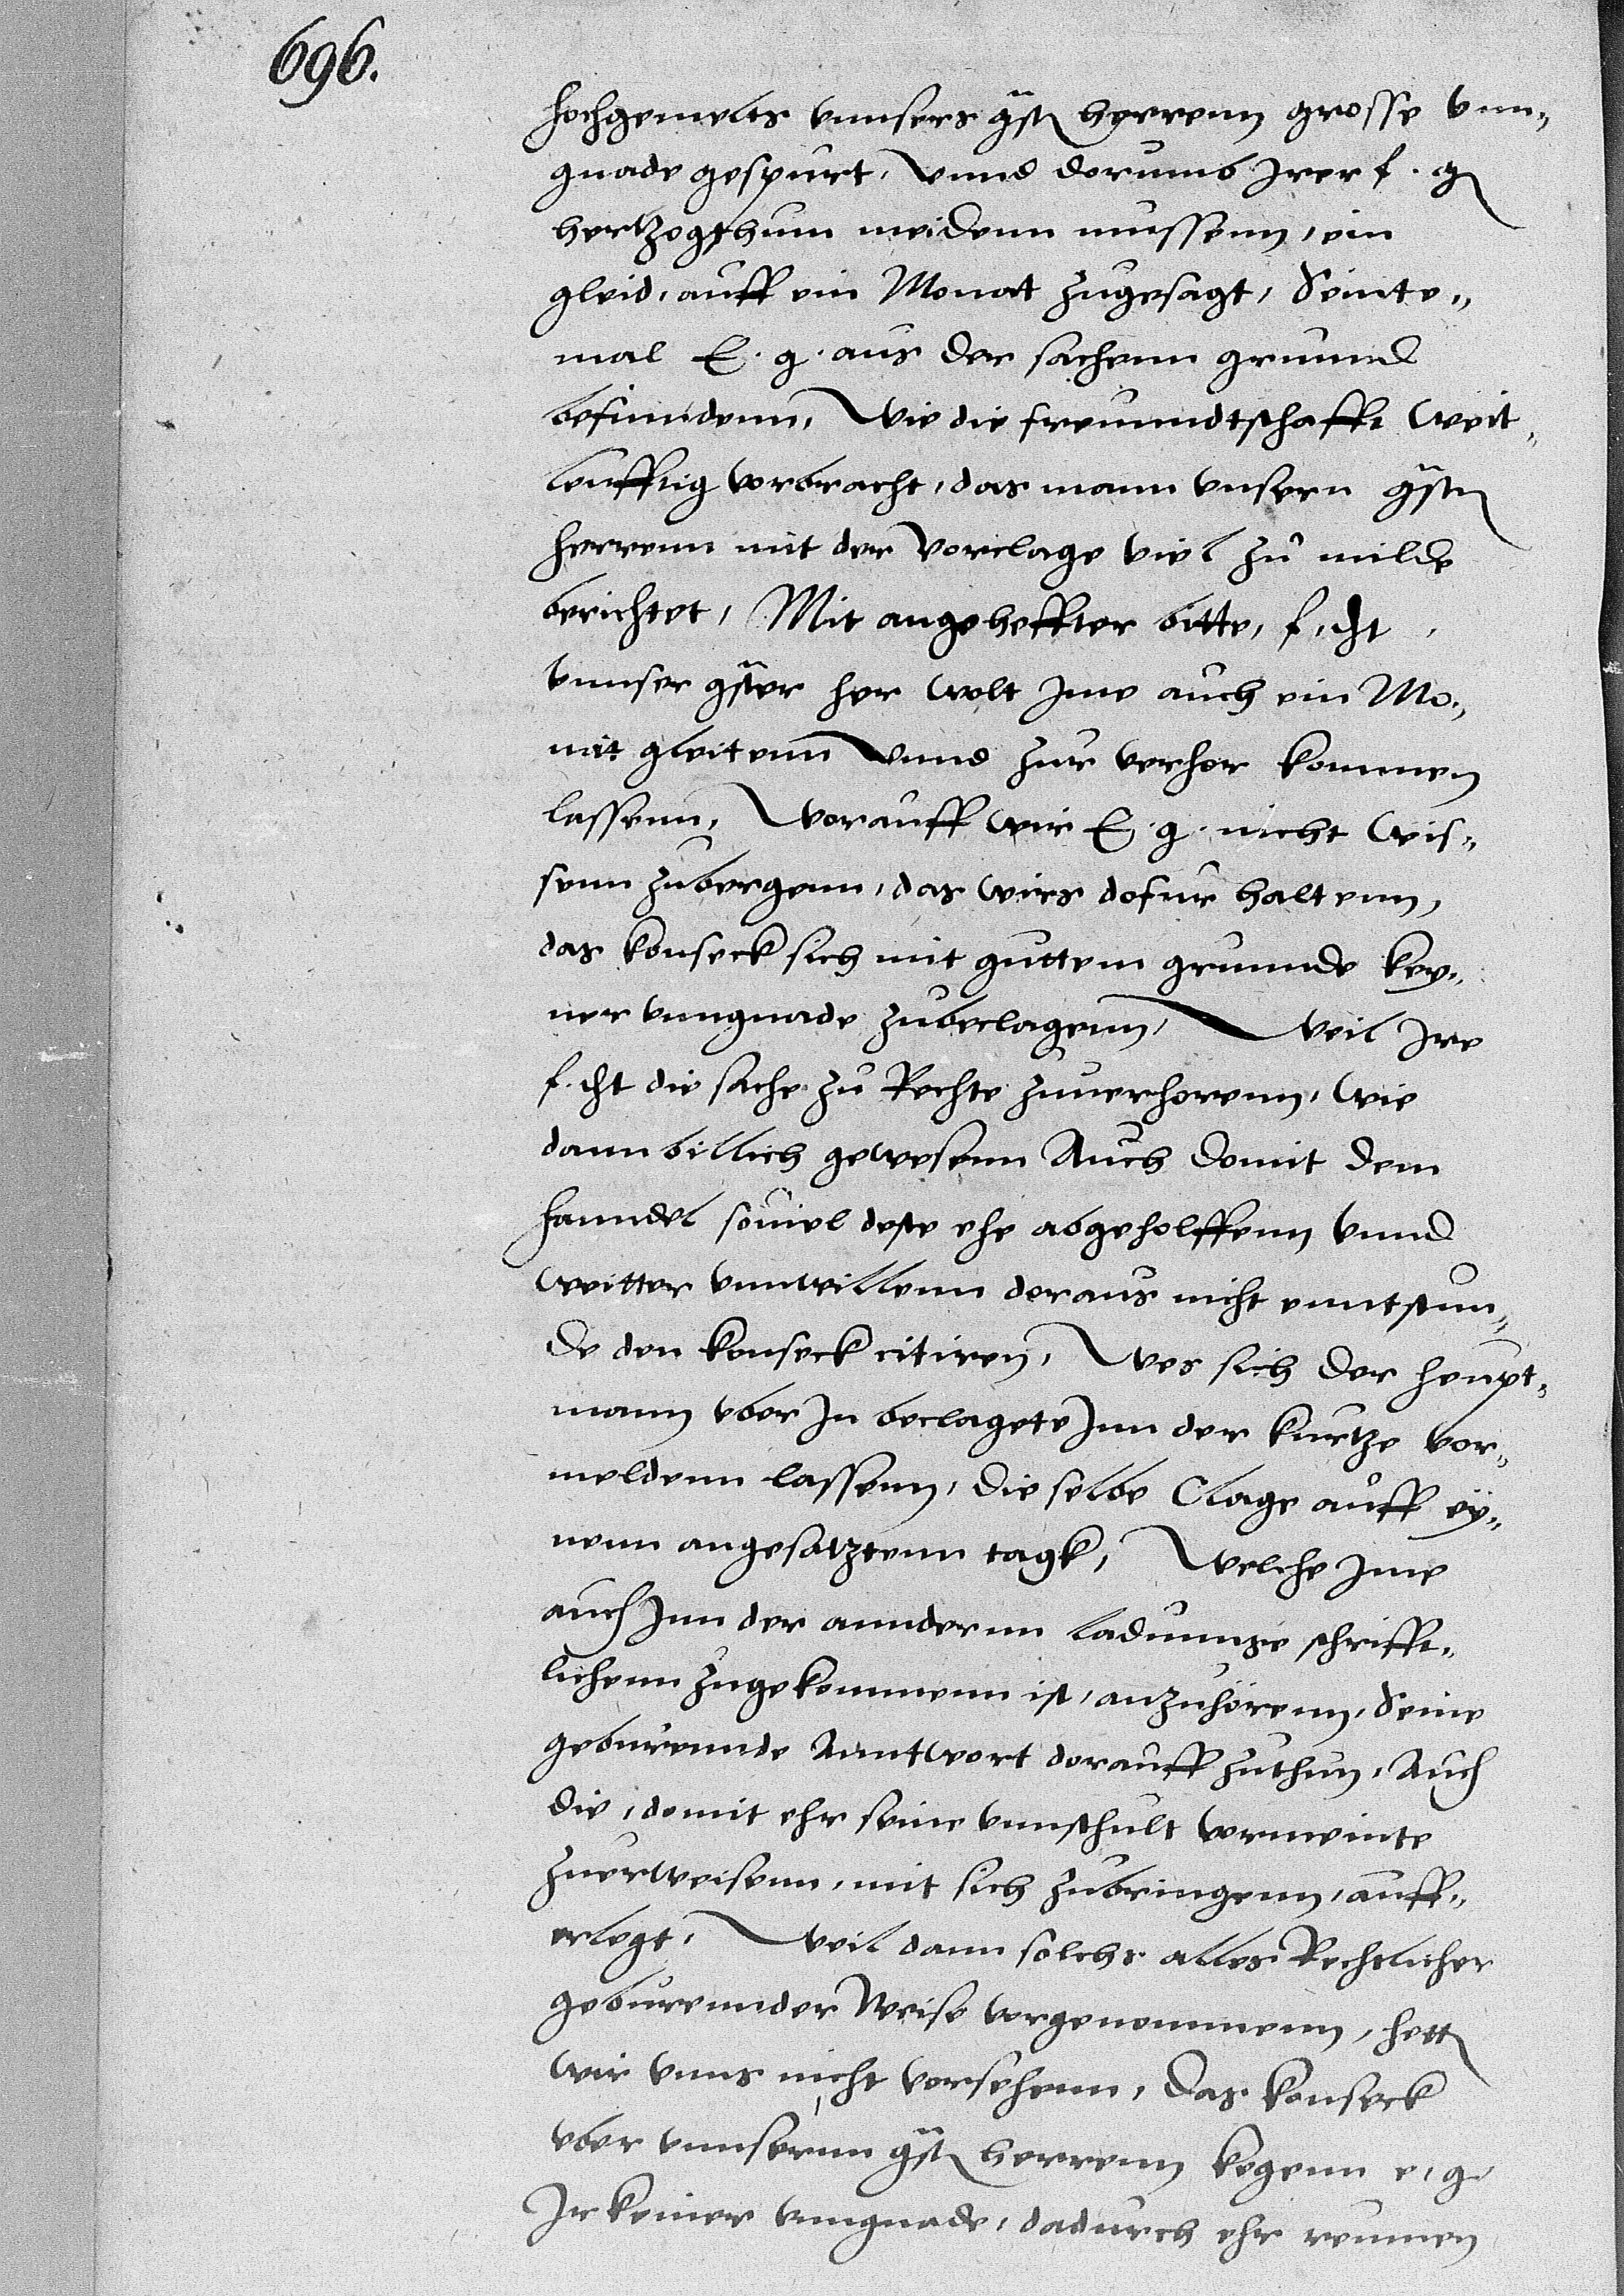 696.
hochgemelts vnnsers gsten herrenn grosse vnn„
gnade gespurt, Vnnd dorumb Irer f. g
hertzogthum meidenn mussenn, ein
gleid, auff ein Monat zugesagt, Seinte„
mal E. g. aus der sachenn grunnd
befunndenn, Wie die freunndtschafft weit„
leufftig vorbracht, das mann vnsern gsten
herrenn mit der Vorclage viel zu milde
berichtet, Mit angeheffter bitte, f. dht
vnnser gster her wolt Ime auch ein Mo„
nat gleitenn Vnnd zur verhor kommen
lassenn, Worauff wir E. g. nicht wis„
senn zubergenn, das wirs dofur haltenn,
das konseck sich mit guttem grunnde key„
ner vnngnade zubeclagenn, Weil Ire
f. dht die sache zu Rechte zuuerhorenn, wie
dann billich gewesenn Auch domit dem
hanndel souiel deste ehe abgeholffenn vnnd
weitter vnnwillenn doraus nicht enntstun„
de den konseck citiren, Wes sich der heupt„
mann vber In beclagete Inn der kurtze vor„
meldenn lassenn, die selbe Clage auff ey„
nenn angesatztenn tagk, Welche Ime
auch Inn der anndernn ladunnge schrifft„
lichenn zugekommenn ist, anzuhörenn, Seine
geburennde Anntwort dorauff zuthun, Auch
die, domit ehr seine vnnschult vermeinte
zuerweisenn, mit sich zubringenn, auff„
erlegt, Weil dann solchs alles Rechtlicher
geburennder Weise vorgenommenn, hetten
wir vnns nicht vorsehenn, das konseck
vber vnnsernn gsten herrenn kegenn e. g.
Irkeiner vnngnade, dadurch ehr reumen